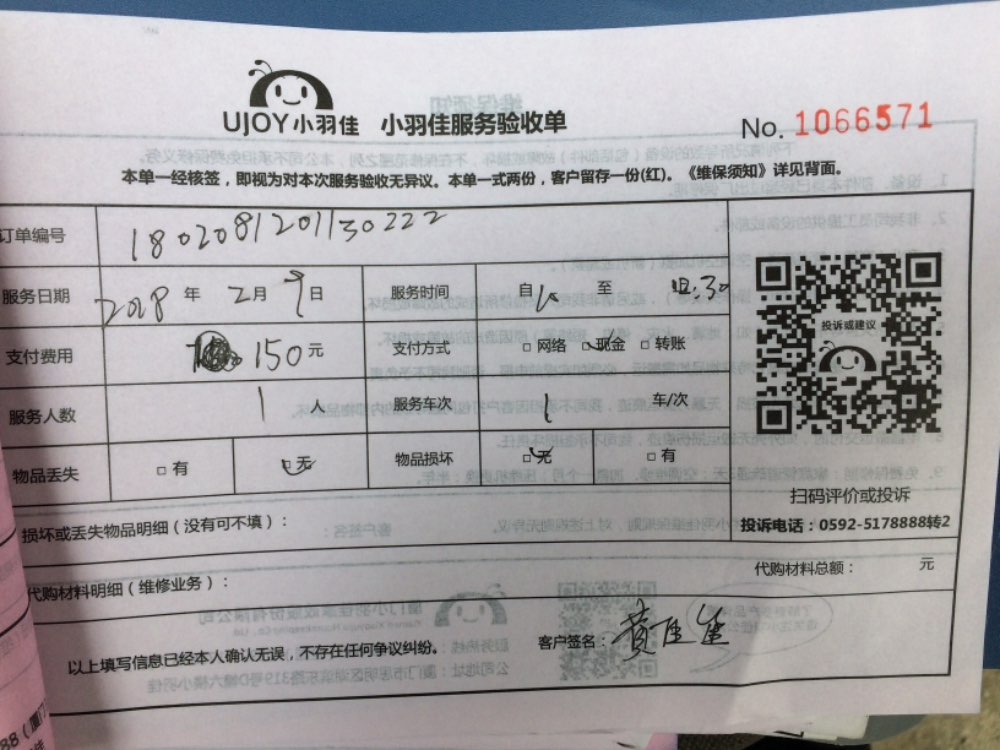 UJOY小羽佳 小羽佳服务验收单
No. 1066571
本单一经核签，即视为对本次服务验收无异议。本单一式两份，客户留存一份(红)。《维保须知》详见背面。
订单编号 1802081201130222
服务日期 2018 年 2月 9日 服务时间 自 至 :30
支付费用 150元 支付方式 □网络 □现金 □转账
服务人数 1 人 服务车次 1 车/次
物品丢失 □有 □无 物品损坏 □无 □有
投诉或建议
扫码评价或投诉
投诉电话：0592-5178888转2
损坏或丢失物品明细（没有可不填）：
代购材料明细（维修业务）：
代购材料总额： 元
以上填写信息已经本人确认无误，不存在任何争议纠纷。
客户签名：黄佳